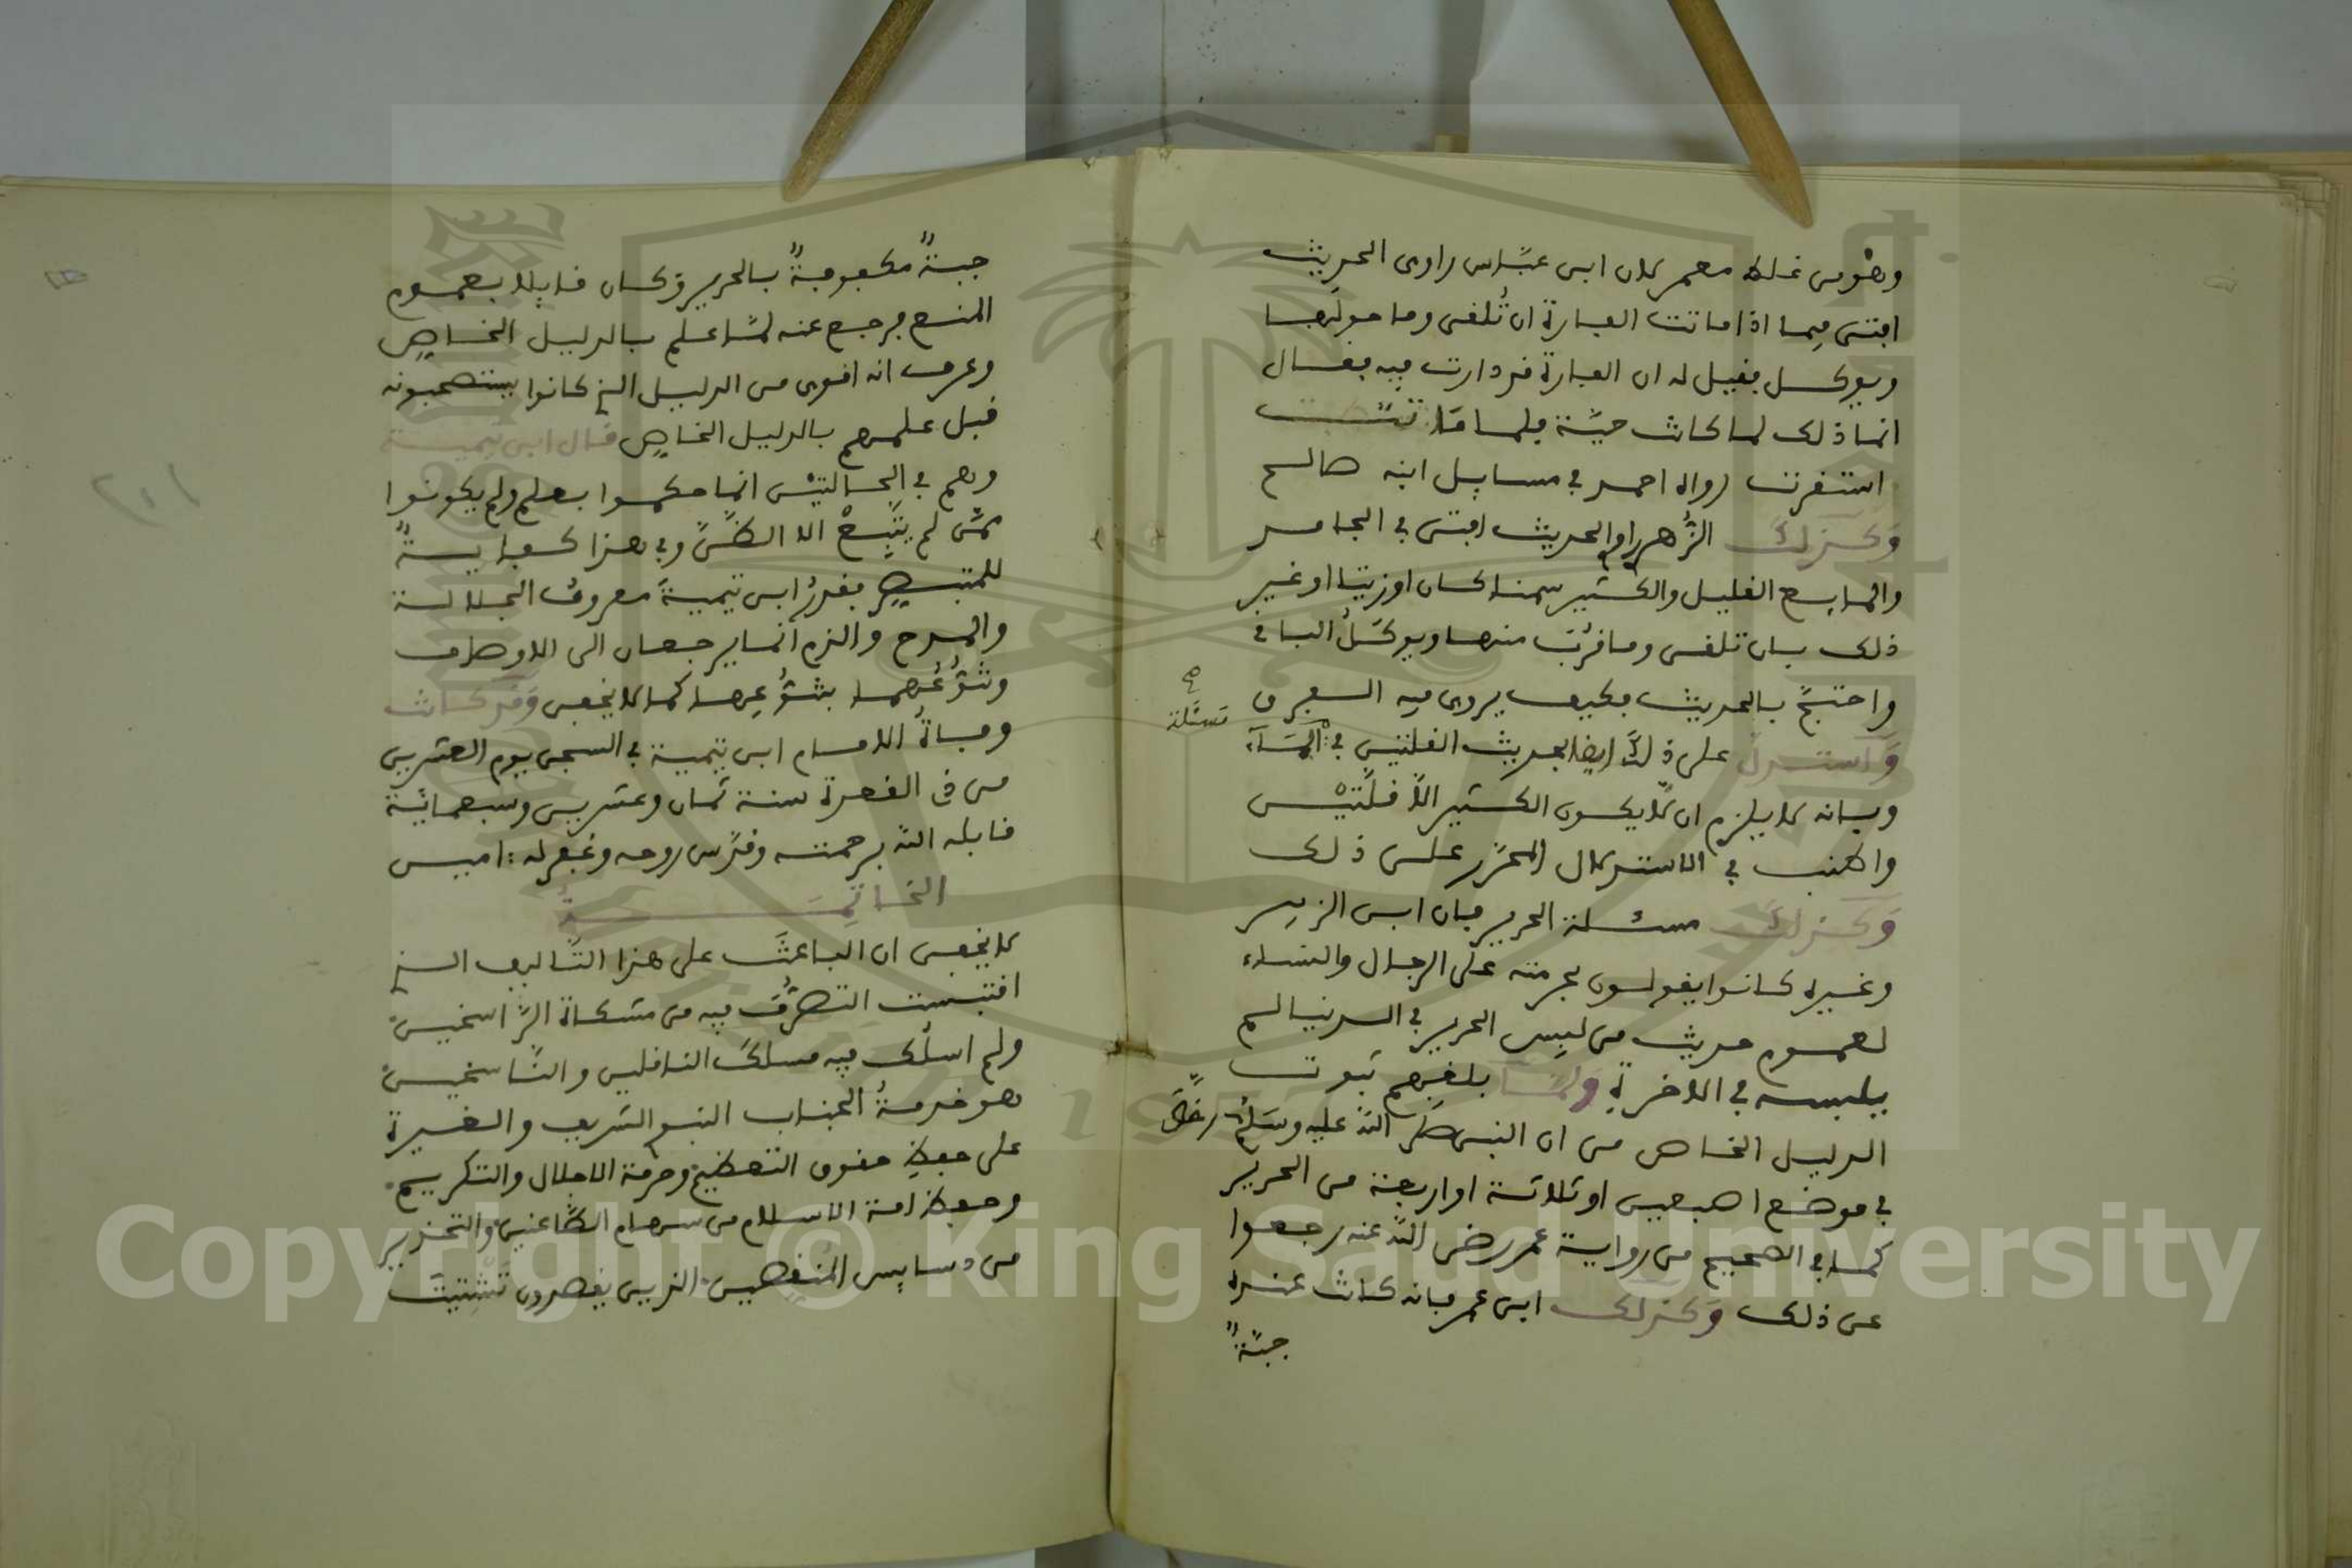 وهو من غلط معمر لان ابن عبّاس راوى الحديث
افتى فيما اذا ماتت الفارة ان تُلقى وما حولها
ويوكل فقيل له ان الفارة قد دارت فيه فقال
انما ذلك لما كانت حيّة فلما ماتت
استقرت رواه احمد في مسايل ابنه صالح
وَكذلك الزُّهري راوي الحديث افتى في الجامد
والمايع القليل والكثير سمنا كان او زيتا او غير
ذلك بان تلقى وما قربت منها ويوكَلُ الباقي
واحتجّ بالحديث فكيف يروى فيه الفرق
وَاستدل على ذلك ايضا بحديث القلتين في المآء
مسئلة
وبانه لا يلزم ان لا يكون الكثير الا قلتَيْن
واطنب في الاستدلال المحرّر على ذلك
وَكذلك مسئلة الحرير فان ابن الزبير
وغيره كانوا يقولون بحرمته على الرجال والنساء
لعموم حديث من لبس الحرير في الدنيا لم
يلبسه في الاخرة وَلمّا بلغهم ثبوت
الدليل الخاص من ان النبي صلى الله عليه وسلم رخّصَ
في موضع اصبعين او ثلاثة او اربعة من الحرير
كما في الصحيح من رواية عمر رضى الله عنه رجعوا
عن ذلك وَكذلك ابن عمر فانه كانت عنده
جبّةٌ
جبةٌ مكفوفةٌ بالحرير وكان قايلا بعموم
المنع فرجع عنه لمّا علم بالدليل الخاص
وعرف انه اقوى من الدليل الذي كانوا يستصحبونه
قبل علمهم بالدليل الخاص قال ابن تيمية
وهم في الحالتَيْن انما حكموا بعلم ولم يكونوا
ممّن لم يتّبِعْ الا الظنّ وفي هذا كفايةٌ
للمتبصر فقدرُ ابن تيميةَ معروف الجلالة
والمدح والذم انما يرجعان الى الاوصاف
وتنوُّعُهما بتنوُّعِها كما لا يخفى وَقد كانت
وفاةُ الامام ابن تيمية في السجن يوم العشرين
من ذي القعدة سنة ثمان وعشرين وسبعمائة
قابله الله برحمته وقدّس روحه وغفر له امين
الخاتِمَـــــةُ
لا يخفى ان الباعثَ على هذا التّاليف الذي
اقتبست التصرُّفَ فيه من مشكاة الرّاسخين
ولم اسلُك فيه مسلكَ الناقلين والنّاسخين
هو خدمةُ الجناب النبوي الشريف والغيرة
على حفظ حقوق التعظيم وحرمة الاجلال والتكريم
وحفظ امة الاسلام من سهام الطّاعنين والتحذير
من دسايس المُنغّصين الذين يقصدون تَشْتيتَ